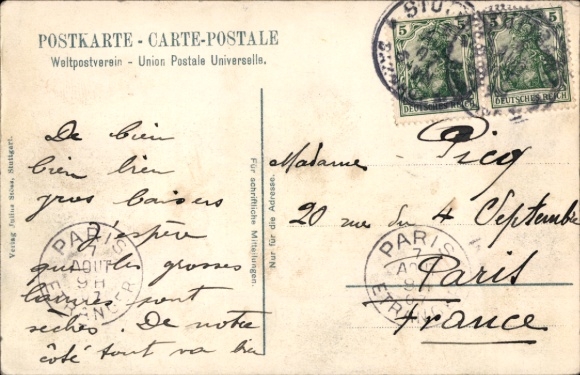 POSTKARTE - CARTE-POSTALE
Weltpostverein - Union Postale Universelle.
STUTT
5 5
5 5
DEUTSCHES REICH
DEUTSCHES REICH
De bien
bien bien
gros baisers
J'espère
que les grosses
larmes sont
sèches. De notre
côté tout va bien
PARIS
7
AOUT
9H
ETRANGER
Verlag Julius Stoss, Stuttgart.
Für schriftliche Mitteilungen.
Nur für die Adresse.
Madame Picq
20 rue du 4 Septembre
Paris
France
PARIS
7
ETRANGER